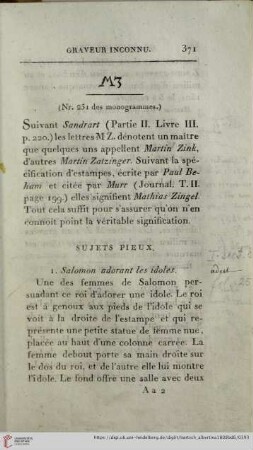 GRAVEUR INCONNU. 371
MZ
(Nr. 231 des monogrammes.)
Suivant Sandrart (Partie II. Livre III.
p. 220.) les lettres M Z. dénotent un maître
que quelques uns appellent Martin Zink,
d'autres Martin Zatzinger. Suivant la spé-
cification d'estampes, écrite par Paul Be-
ham et citée par Murr (Journal. T. II.
page 199.) elles signifient Mathias Zingel.
Tout cela suffit pour s'assurer qu'on n'en
connoît point la véritable signification.
SUJETS PIEUX.
1. Salomon adorant les idoles.
Une des femmes de Salomon per-
suadant ce roi d'adorer une idole. Le roi
est à genoux aux pieds de l'idole qui se
voit à la droite de l'estampe et qui re-
présente une petite statue de femme nue,
placée au haut d'une colonne carrée. La
femme debout porte sa main droite sur
le dos du roi, et de l'autre elle lui montre
l'idole. Le fond offre une salle avec deux
A a 2